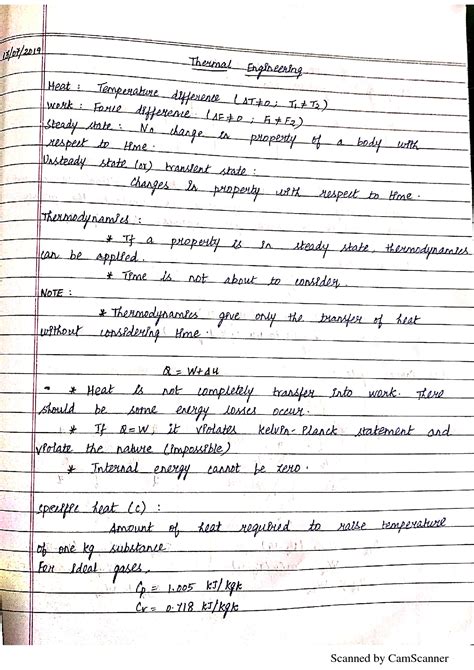 13/07/2019
Thermal Engineering
Heat : Temperature difference (ΔT≠0 ; T₁≠T₂)
Work : Force difference (ΔF≠0 ; F₁≠F₂)
Steady state : No change in property of a body with
respect to time.
Unsteady state (or) transient state :
Changes in property with respect to time.
Thermodynamics :
* If a property is in steady state, thermodynamics
can be applied.
* Time is not about to consider.
NOTE :
* Thermodynamics give only the transfer of heat
without considering time.
Q = W+ΔU
* Heat is not completely transfer into work. There
should be some energy losses occur.
* If Q=W, it violates Kelvin-Planck statement and
violate the nature (impossible)
* Internal energy cannot be zero.
Specific heat (c) :
Amount of heat required to raise temperature
of one kg substance
For Ideal gases,
Cp = 1.005 kJ/kgk
Cv = 0.718 kJ/kgk
Scanned by CamScanner